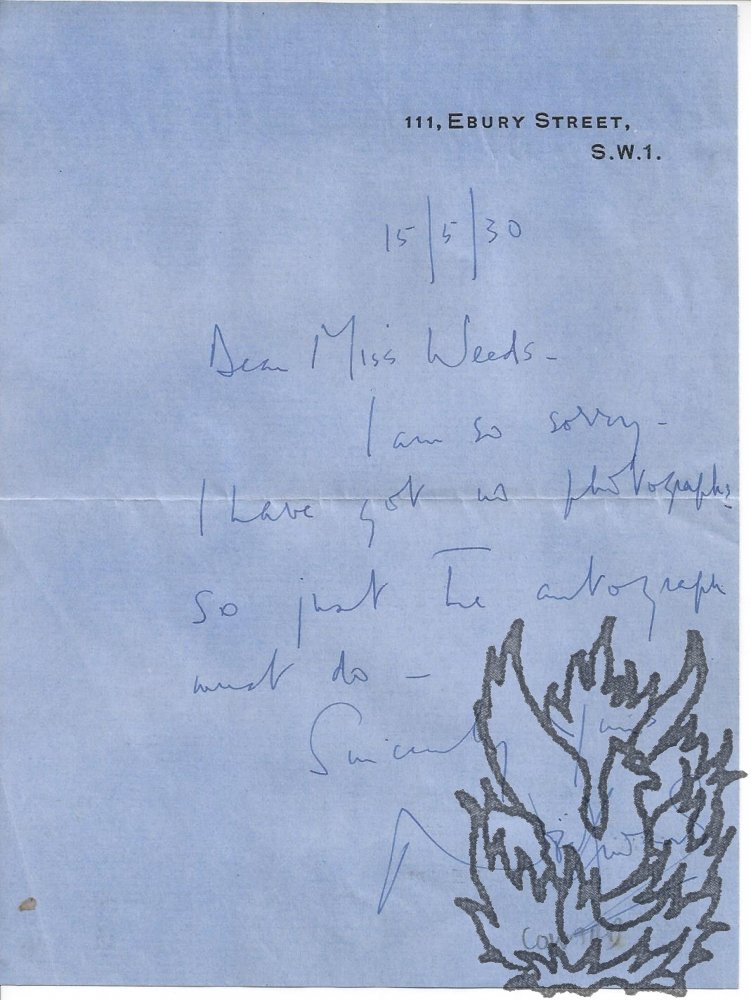 111, EBURY STREET,
S.W.1.
15/5/30
Dear Miss Weeds -
I am so sorry -
I have got no photographs
so just the autograph
must do -
Sincerely Yours